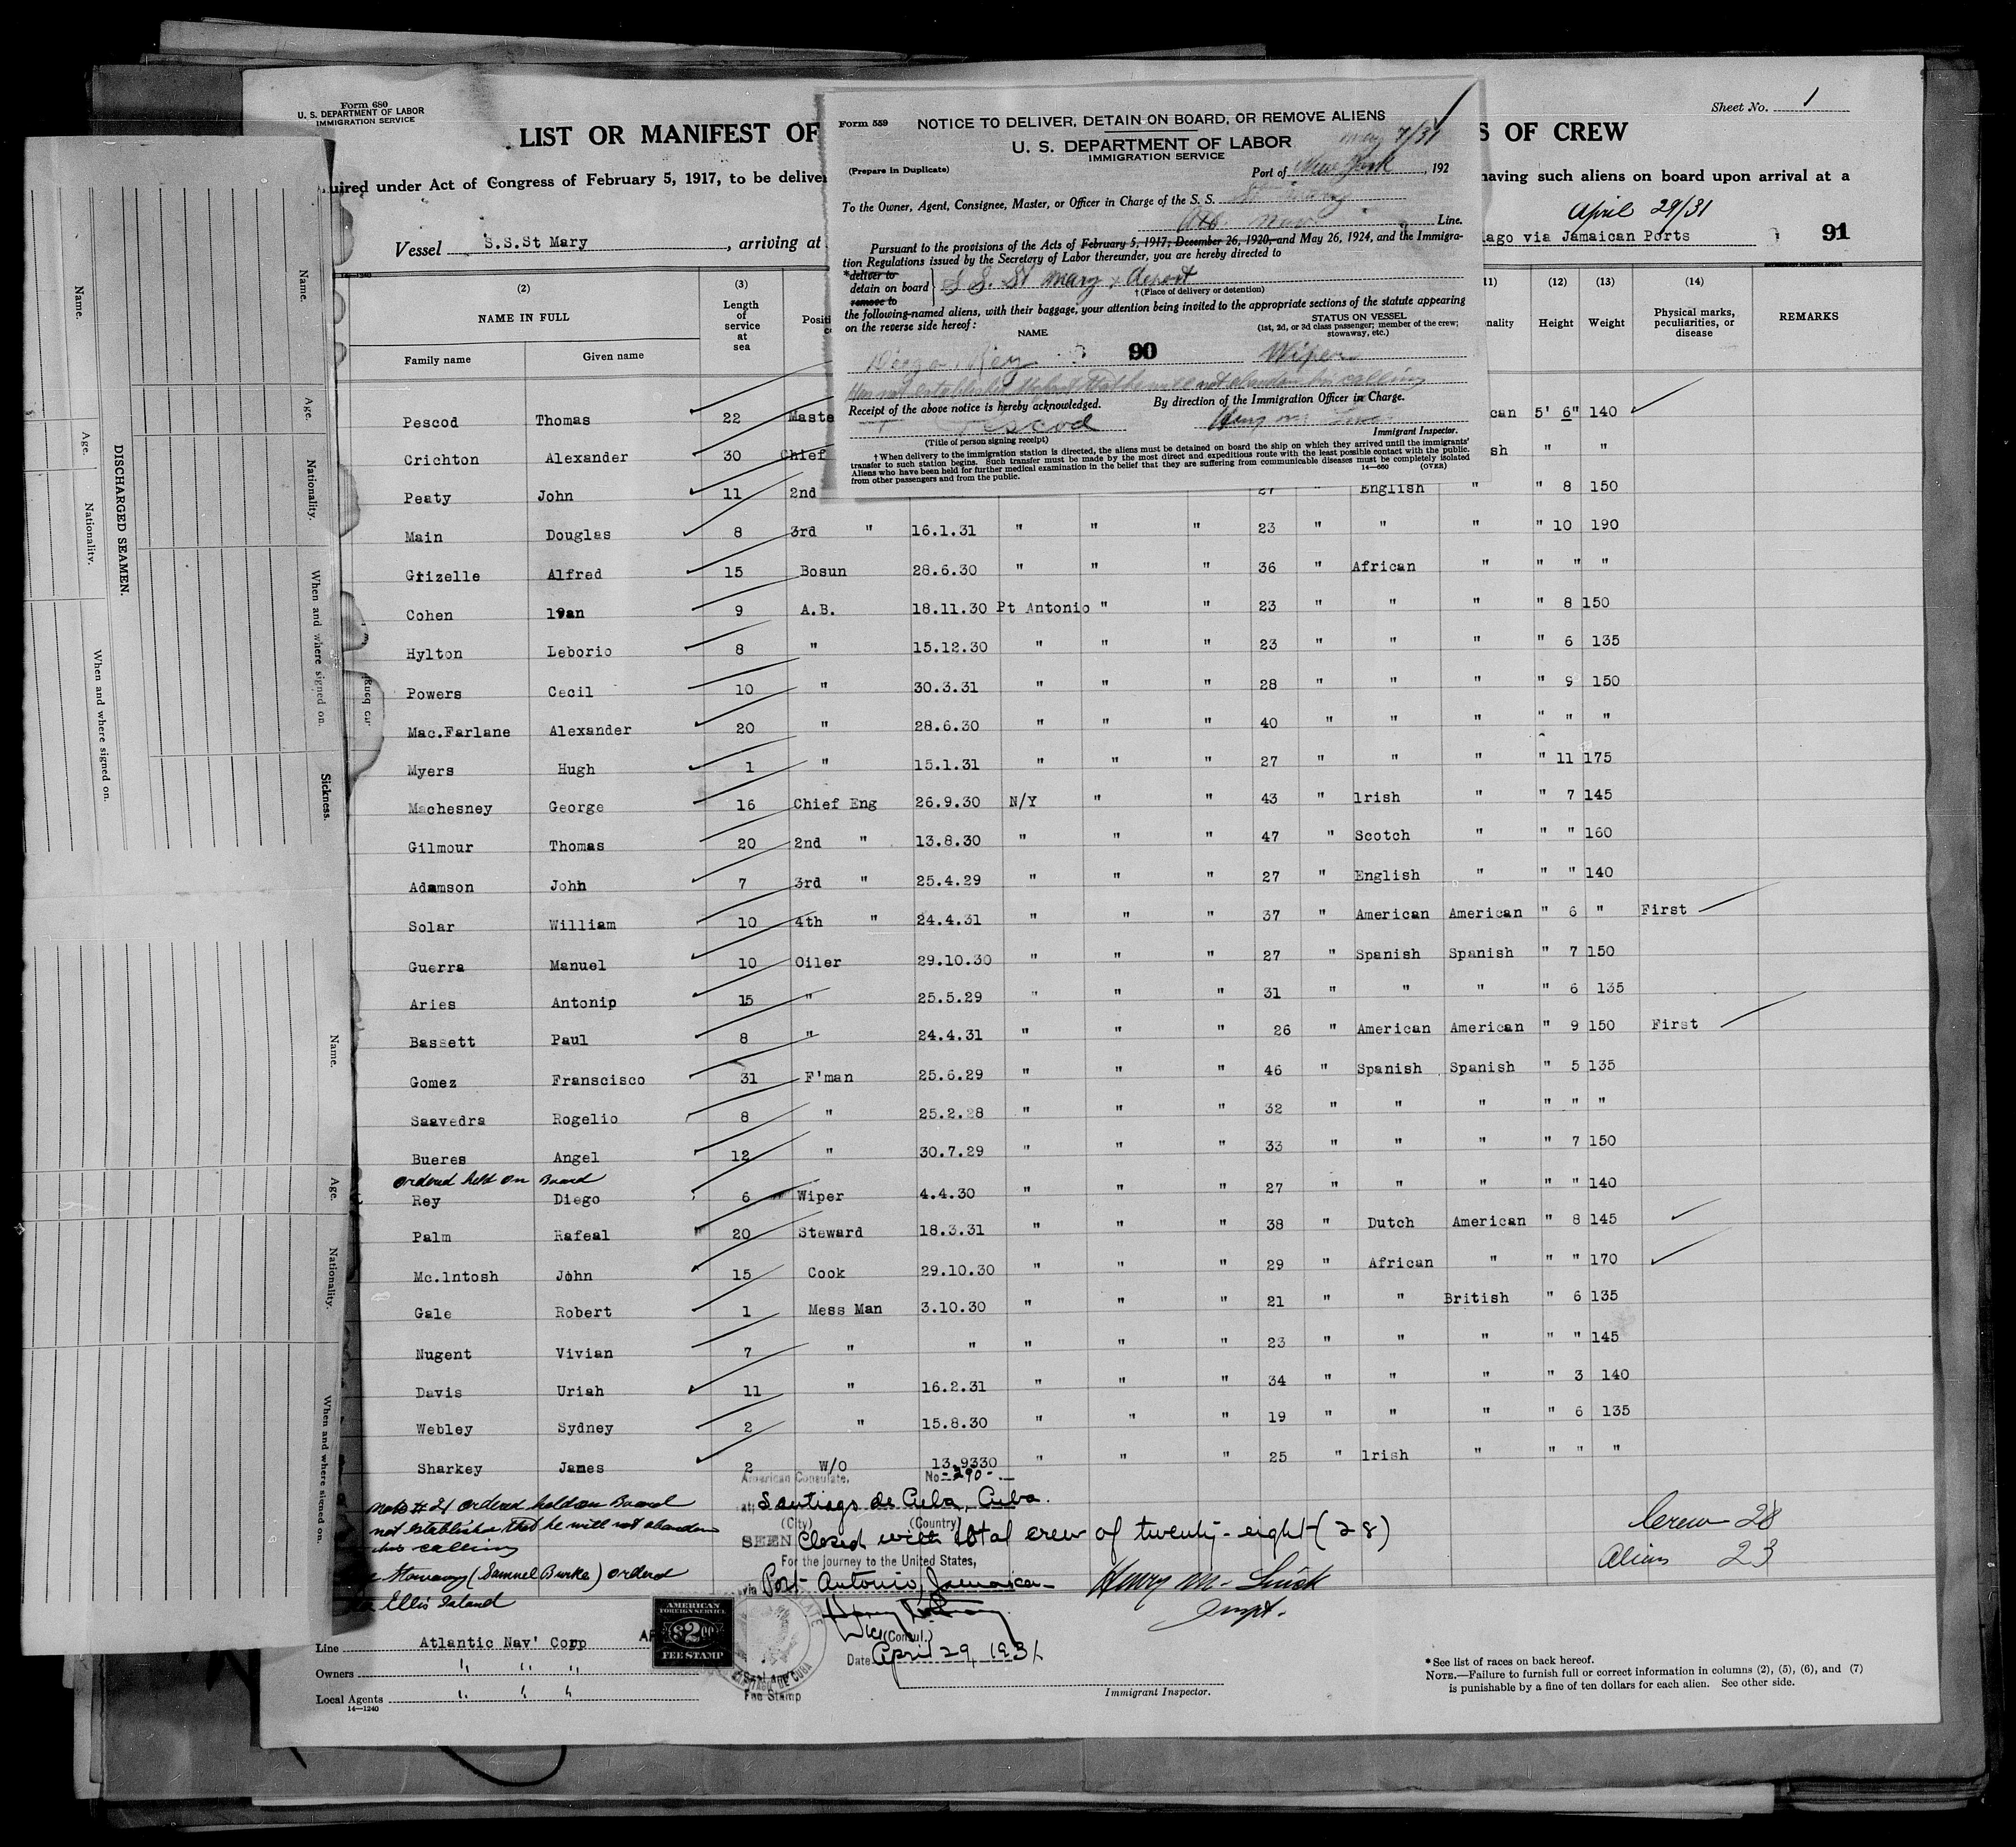 Form 680
U. S. DEPARTMENT OF LABOR
IMMIGRATION SERVICE
Sheet No. 1
LIST OR MANIFEST OF
S OF CREW
uired under Act of Congress of February 5, 1917, to be deliver
having such aliens on board upon arrival at a
Vessel S.S.St Mary, arriving at
April 29/31
iago via Jamaican Ports
91
Form 559
NOTICE TO DELIVER, DETAIN ON BOARD, OR REMOVE ALIENS
U. S. DEPARTMENT OF LABOR
IMMIGRATION SERVICE
May 7/31
(Prepare in Duplicate)
Port of New York, 192
To the Owner, Agent, Consignee, Master, or Officer in Charge of the S. S. St Mary
Line.
Pursuant to the provisions of the Acts of February 5, 1917; December 26, 1920, and May 26, 1924, and the Immigra-
tion Regulations issued by the Secretary of Labor thereunder, you are hereby directed to
*deliver to
detain on board
remove to
S S. St Mary & deport
† (Place of delivery or detention)
the following-named aliens, with their baggage, your attention being invited to the appropriate sections of the statute appearing
on the reverse side hereof:
NAME
STATUS ON VESSEL
(1st, 2d, or 3d class passenger; member of the crew; stowaway, etc.)
Diego Rey 90 Wiper
Has not established that he will not abandon his calling
Receipt of the above notice is hereby acknowledged.
By direction of the Immigration Officer in Charge.
Pescod
(Title of person signing receipt)
Immigrant Inspector.
† When delivery to the immigration station is directed, the aliens must be detained on board the ship on which they arrived until the immigrants'
transfer to such station begins. Such transfer must be made by the most direct and expeditious route with the least possible contact with the public.
Aliens who have been held for further medical examination in the belief that they are suffering from communicable diseases must be completely isolated
from other passengers and from the public.
14—660 (OVER)
(2) (3) 11) (12) (13) (14)
NAME IN FULL
Family name Given name
Length of service at sea
Positi
nality Height Weight
Physical marks, peculiarities, or disease
REMARKS
Pescod Thomas 22 Maste can 5' 6" 140
Crichton Alexander 30 Chief sh " "
Peaty John 11 2nd 27 " English " " 8 150
Main Douglas 8 3rd " 16.1.31 " " " 23 " " " " 10 190
Grizelle Alfred 15 Bosun 28.6.30 " " " 36 " African " " " "
Cohen 1van 9 A.B. 18.11.30 Pt Antonio " " 23 " " " " 8 150
Hylton Leborio 8 " 15.12.30 " " " 23 " " " " 6 135
Powers Cecil 10 " 30.3.31 " " " 28 " " " " 9 150
Mac.Farlane Alexander 20 " 28.6.30 " " " 40 " " " " " "
Myers Hugh 1 " 15.1.31 " " " 27 " " " " 11 175
Machesney George 16 Chief Eng 26.9.30 N/Y " " 43 " lrish " " 7 145
Gilmour Thomas 20 2nd " 13.8.30 " " " 47 " Scotch " " " 160
Adamson John 7 3rd " 25.4.29 " " " 27 " English " " " 140
Solar William 10 4th " 24.4.31 " " " 37 " American American " 6 " First
Guerra Manuel 10 Oiler 29.10.30 " " " 27 " Spanish Spanish " 7 150
Aries Antonip 15 " 25.5.29 " " " 31 " " " " 6 135
Bassett Paul 8 " 24.4.31 " " " 26 " American American " 9 150 First
Gomez Franscisco 31 F'man 25.6.29 " " " 46 " Spanish Spanish " 5 135
Saavedra Rogelio 8 " 25.2.28 " " " 32 " " " " " "
Bueres Angel 12 " 30.7.29 " " " 33 " " " " 7 150
ordered held on Board
Rey Diego 6 " Wiper 4.4.30 " " " 27 " " " " " 140
Palm Rafeal 20 Steward 18.3.31 " " " 38 " Dutch American " 8 145
Mc.lntosh John 15 Cook 29.10.30 " " " 29 " African " " " 170
Gale Robert 1 Mess Man 3.10.30 " " " 21 " " British " 6 135
Nugent Vivian 7 " " " " " 23 " " " " " 145
Davis Uriah 11 " 16.2.31 " " " 34 " " " " 3 140
Webley Sydney 2 " 15.8.30 " " " 19 " " " " 6 135
Sharkey James 2 W/O 13.9330 " " " 25 " lrish " " " "
American Consulate, No-290-
at Santiago de Cuba, Cuba.
(City) (Country)
SEEN Closed with total crew of twenty-eight (28)
For the journey to the United States,
via Port Antonio, Jamaica
Vice (Consul.)
Date April 29, 1931
Note #21 ordered held on Board
not establish that he will not abandon
his calling
Stowaway (Samuel Burke) ordered
Ellis Island
Crew 28
Aliens 23
Henry M. Smick
Inspt.
Immigrant Inspector.
Line Atlantic Nav' Corp
Owners " " "
Local Agents " " "
14—1240
AMERICAN
FOREIGN SERVICE
$2.00
FEE STAMP
Fee Stamp
*See list of races on back hereof.
NOTE.—Failure to furnish full or correct information in columns (2), (5), (6), and (7)
is punishable by a fine of ten dollars for each alien. See other side.
DISCHARGED SEAMEN.
Name.
Age.
Nationality.
When and where signed on.
Name.
Age.
Nationality.
When and where signed on.
Sickness.
Name.
Age.
Nationality.
When and where signed on.